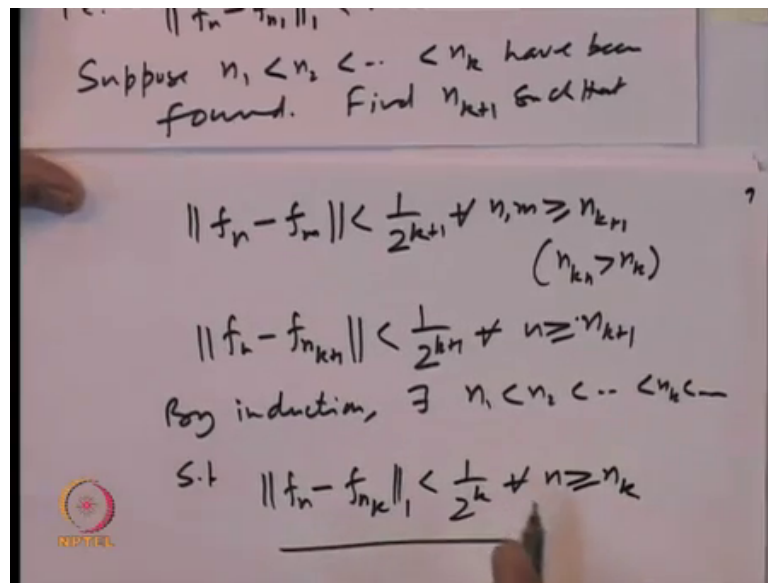 i.e. || fn - fn1 ||1 <
Suppose n1 < n2 < ... < nk have been
found. Find nk+1 such that
|| fn - fm || < 1/2^(k+1) ∀ n, m ≥ nk+1
(nk+1 > nk)
|| fn - fnk+1 || < 1/2^(k+1) ∀ n ≥ nk+1
By induction, ∃ n1 < n2 < ... < nk < ...
s.t || fn - fnk ||1 < 1/2^k ∀ n ≥ nk
NPTEL